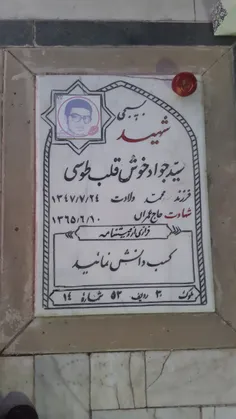 بسمی
شهید
سید جواد خوش قلب طوسی
فرزند محمد ولادت ۱۳۴۷/۷/۲۴
شهادت حاج عمران ۱۳۶۵/۶/۱۰
فرازی از وصیتنامه
کسب دانش نمائید
بلوک ۳۰ ردیف ۵۳ شماره ۱۴